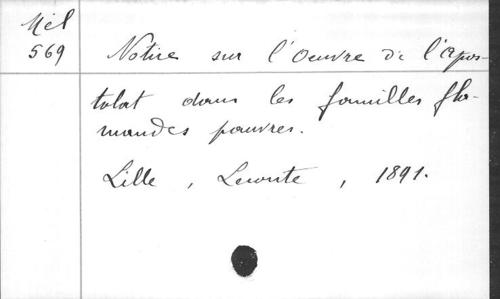 Mél
569
Notice sur l'Oeuvre de l'apos-
tolat dans les familles fla-
mandes pauvres.
Lille, Leconte, 1891.